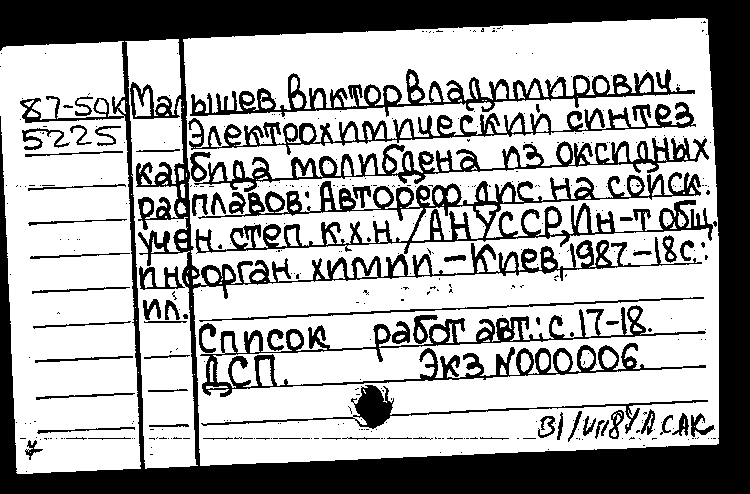 87-50к Малышев, Виктор Владимирович.
5225 Электрохимический синтез
карбида молибдена из оксидных
расплавов: Автореф. дис. на соиск.
учен. степ. к.х.н. / АН УССР, Ин-т общ.
и неорган. химии. – Киев, 1987. – 18 с.:
ил.
Список работ авт.: с. 17-18.
ДСП. Экз. N000006.